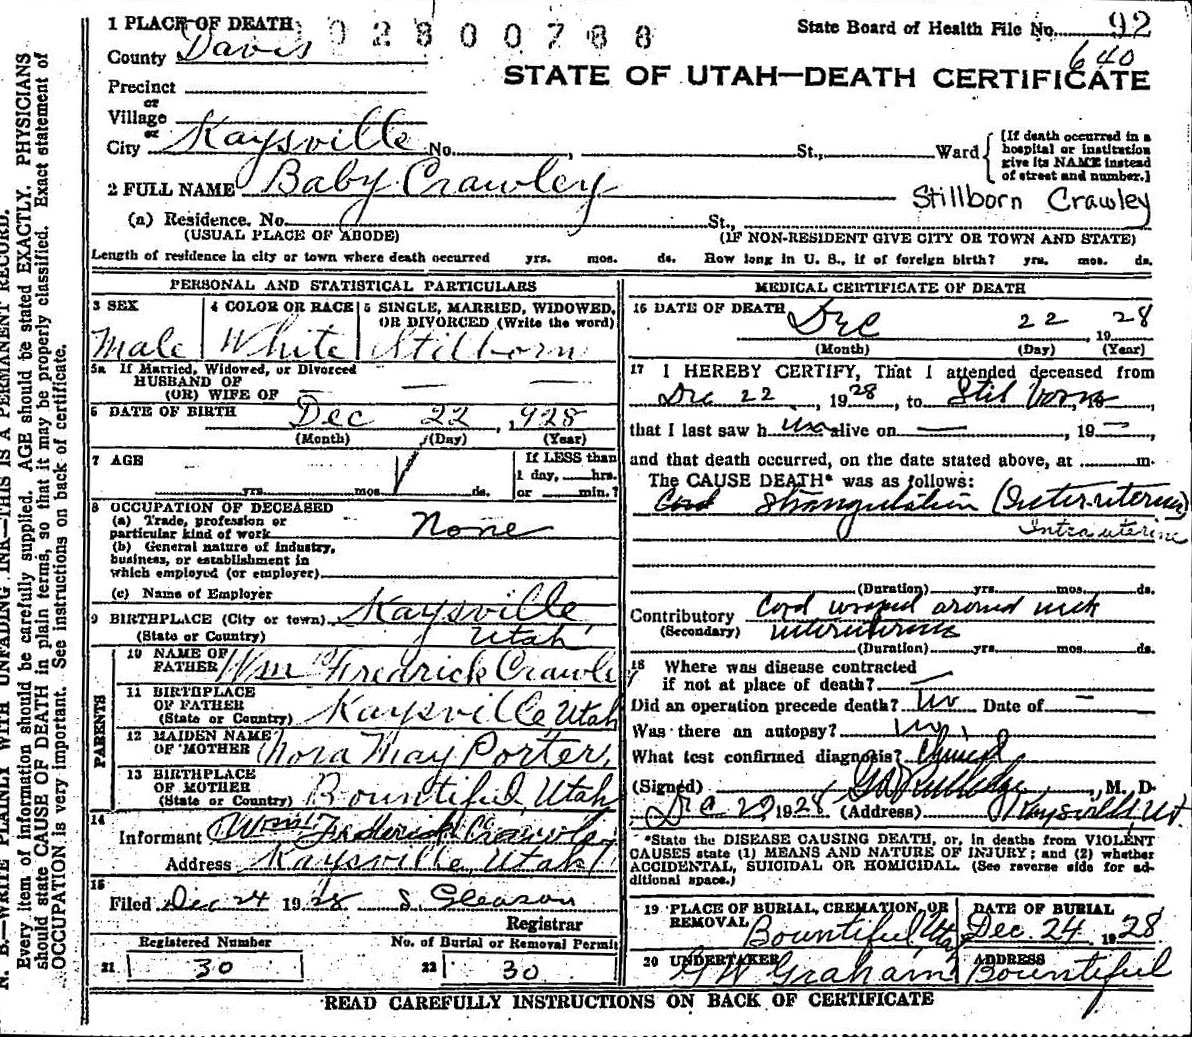 1 PLACE OF DEATH 02800788
State Board of Health File No. 92
County Davis
640
STATE OF UTAH—DEATH CERTIFICATE
Precinct
or
Village
or
City Kaysville No. , St., Ward
[If death occurred in a
hospital or institution
give its NAME instead
of street and number.]
2 FULL NAME Baby Crawley
Stillborn Crawley
(a) Residence. No. St.,
(USUAL PLACE OF ABODE) (IF NON-RESIDENT GIVE CITY OR TOWN AND STATE)
Length of residence in city or town where death occurred yrs. mos. ds. How long in U. S., if of foreign birth? yrs. mos. ds.
PERSONAL AND STATISTICAL PARTICULARS
3 SEX 4 COLOR OR RACE 5 SINGLE, MARRIED, WIDOWED,
OR DIVORCED (Write the word)
Male White Stillborn
5a If Married, Widowed, or Divorced
HUSBAND OF
(OR) WIFE OF — — —
6 DATE OF BIRTH Dec 22, 928
(Month) (Day) (Year)
7 AGE If LESS than
1 day, hrs.
yrs. mos. ds. or min.?
8 OCCUPATION OF DECEASED
(a) Trade, profession or
particular kind of work None
(b) General nature of industry,
business, or establishment in
which employed (or employer)
(c) Name of Employer
9 BIRTHPLACE (City or town) Kaysville
(State or Country) Utah
PARENTS
10 NAME OF
FATHER Wm Fredrick Crawley
11 BIRTHPLACE
OF FATHER
(State or Country) Kaysville, Utah
12 MAIDEN NAME
OF MOTHER Nora May Porter
13 BIRTHPLACE
OF MOTHER
(State or Country) Bountiful, Utah
14
Informant Wm Frederick Crawley
Address Kaysville, Utah
15
Filed Dec 24 1928 S. Gleason
Registrar
Registered Number No. of Burial or Removal Permit
21 30 22 30
MEDICAL CERTIFICATE OF DEATH
16 DATE OF DEATH Dec 22, 1928
(Month) (Day) (Year)
17 I HEREBY CERTIFY, That I attended deceased from
Dec 22, 1928, to Stil born, 19
that I last saw h alive on —, 19—
and that death occurred, on the date stated above, at m.
The CAUSE DEATH* was as follows:
Cord Strangulation (Interuterine)
Intrauterine
(Duration) yrs. mos. ds.
Contributory Cord wraped around neck
(Secondary) interuterine
(Duration) yrs. mos. ds.
18 Where was disease contracted
if not at place of death? —
Did an operation precede death? no Date of —
Was there an autopsy? no
What test confirmed diagnosis? Clinical
(Signed) Rutledge, M. D.
Dec 22, 1928 (Address) Kaysville Ut.
*State the DISEASE CAUSING DEATH, or, in deaths from VIOLENT
CAUSES state (1) MEANS AND NATURE OF INJURY; and (2) whether
ACCIDENTAL, SUICIDAL OR HOMICIDAL. (See reverse side for ad-
ditional space.)
19 PLACE OF BURIAL, CREMATION, OR
REMOVAL Bountiful, Utah
DATE OF BURIAL
Dec. 24 1928.
20 UNDERTAKER G W Graham
ADDRESS Bountiful
READ CAREFULLY INSTRUCTIONS ON BACK OF CERTIFICATE
N. B.—WRITE PLAINLY WITH UNFADING INK—THIS IS A PERMANENT RECORD.
Every item of information should be carefully supplied. AGE should be stated EXACTLY. PHYSICIANS
should state CAUSE OF DEATH in plain terms, so that it may be properly classified. Exact statement of
OCCUPATION is very important. See instructions on back of certificate.